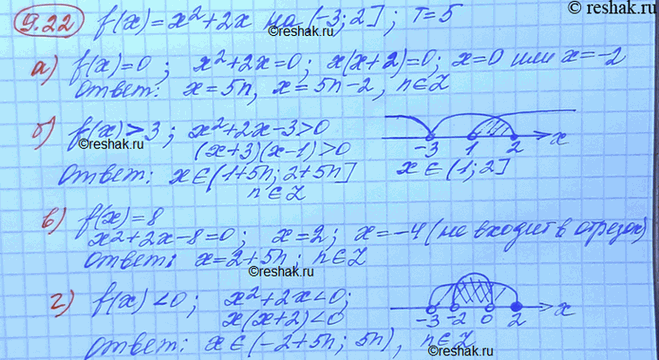 ©reshak.ru
9.22 f(x)=x²+2x на (-3;2]; T=5
а) f(x)=0; x²+2x=0; x(x+2)=0; x=0 или x=-2
©reshak.ru
Ответ: x=5n, x=5n-2, n∈Z
б) f(x)>3; x²+2x-3>0
©reshak.ru
(x+3)(x-1)>0
-3 1 2 x
Ответ: x∈(1+5n; 2+5n] x∈(1;2]
n∈Z
в) f(x)=8
x²+2x-8=0; x=2; x=-4 (не входит в отрезок)
Ответ: x=2+5n; n∈Z
©reshak.ru
г) f(x)<0; x²+2x<0;
x(x+2)<0
-3 -2 0 2 x
Ответ: x∈(-2+5n; 5n), n∈Z
©reshak.ru